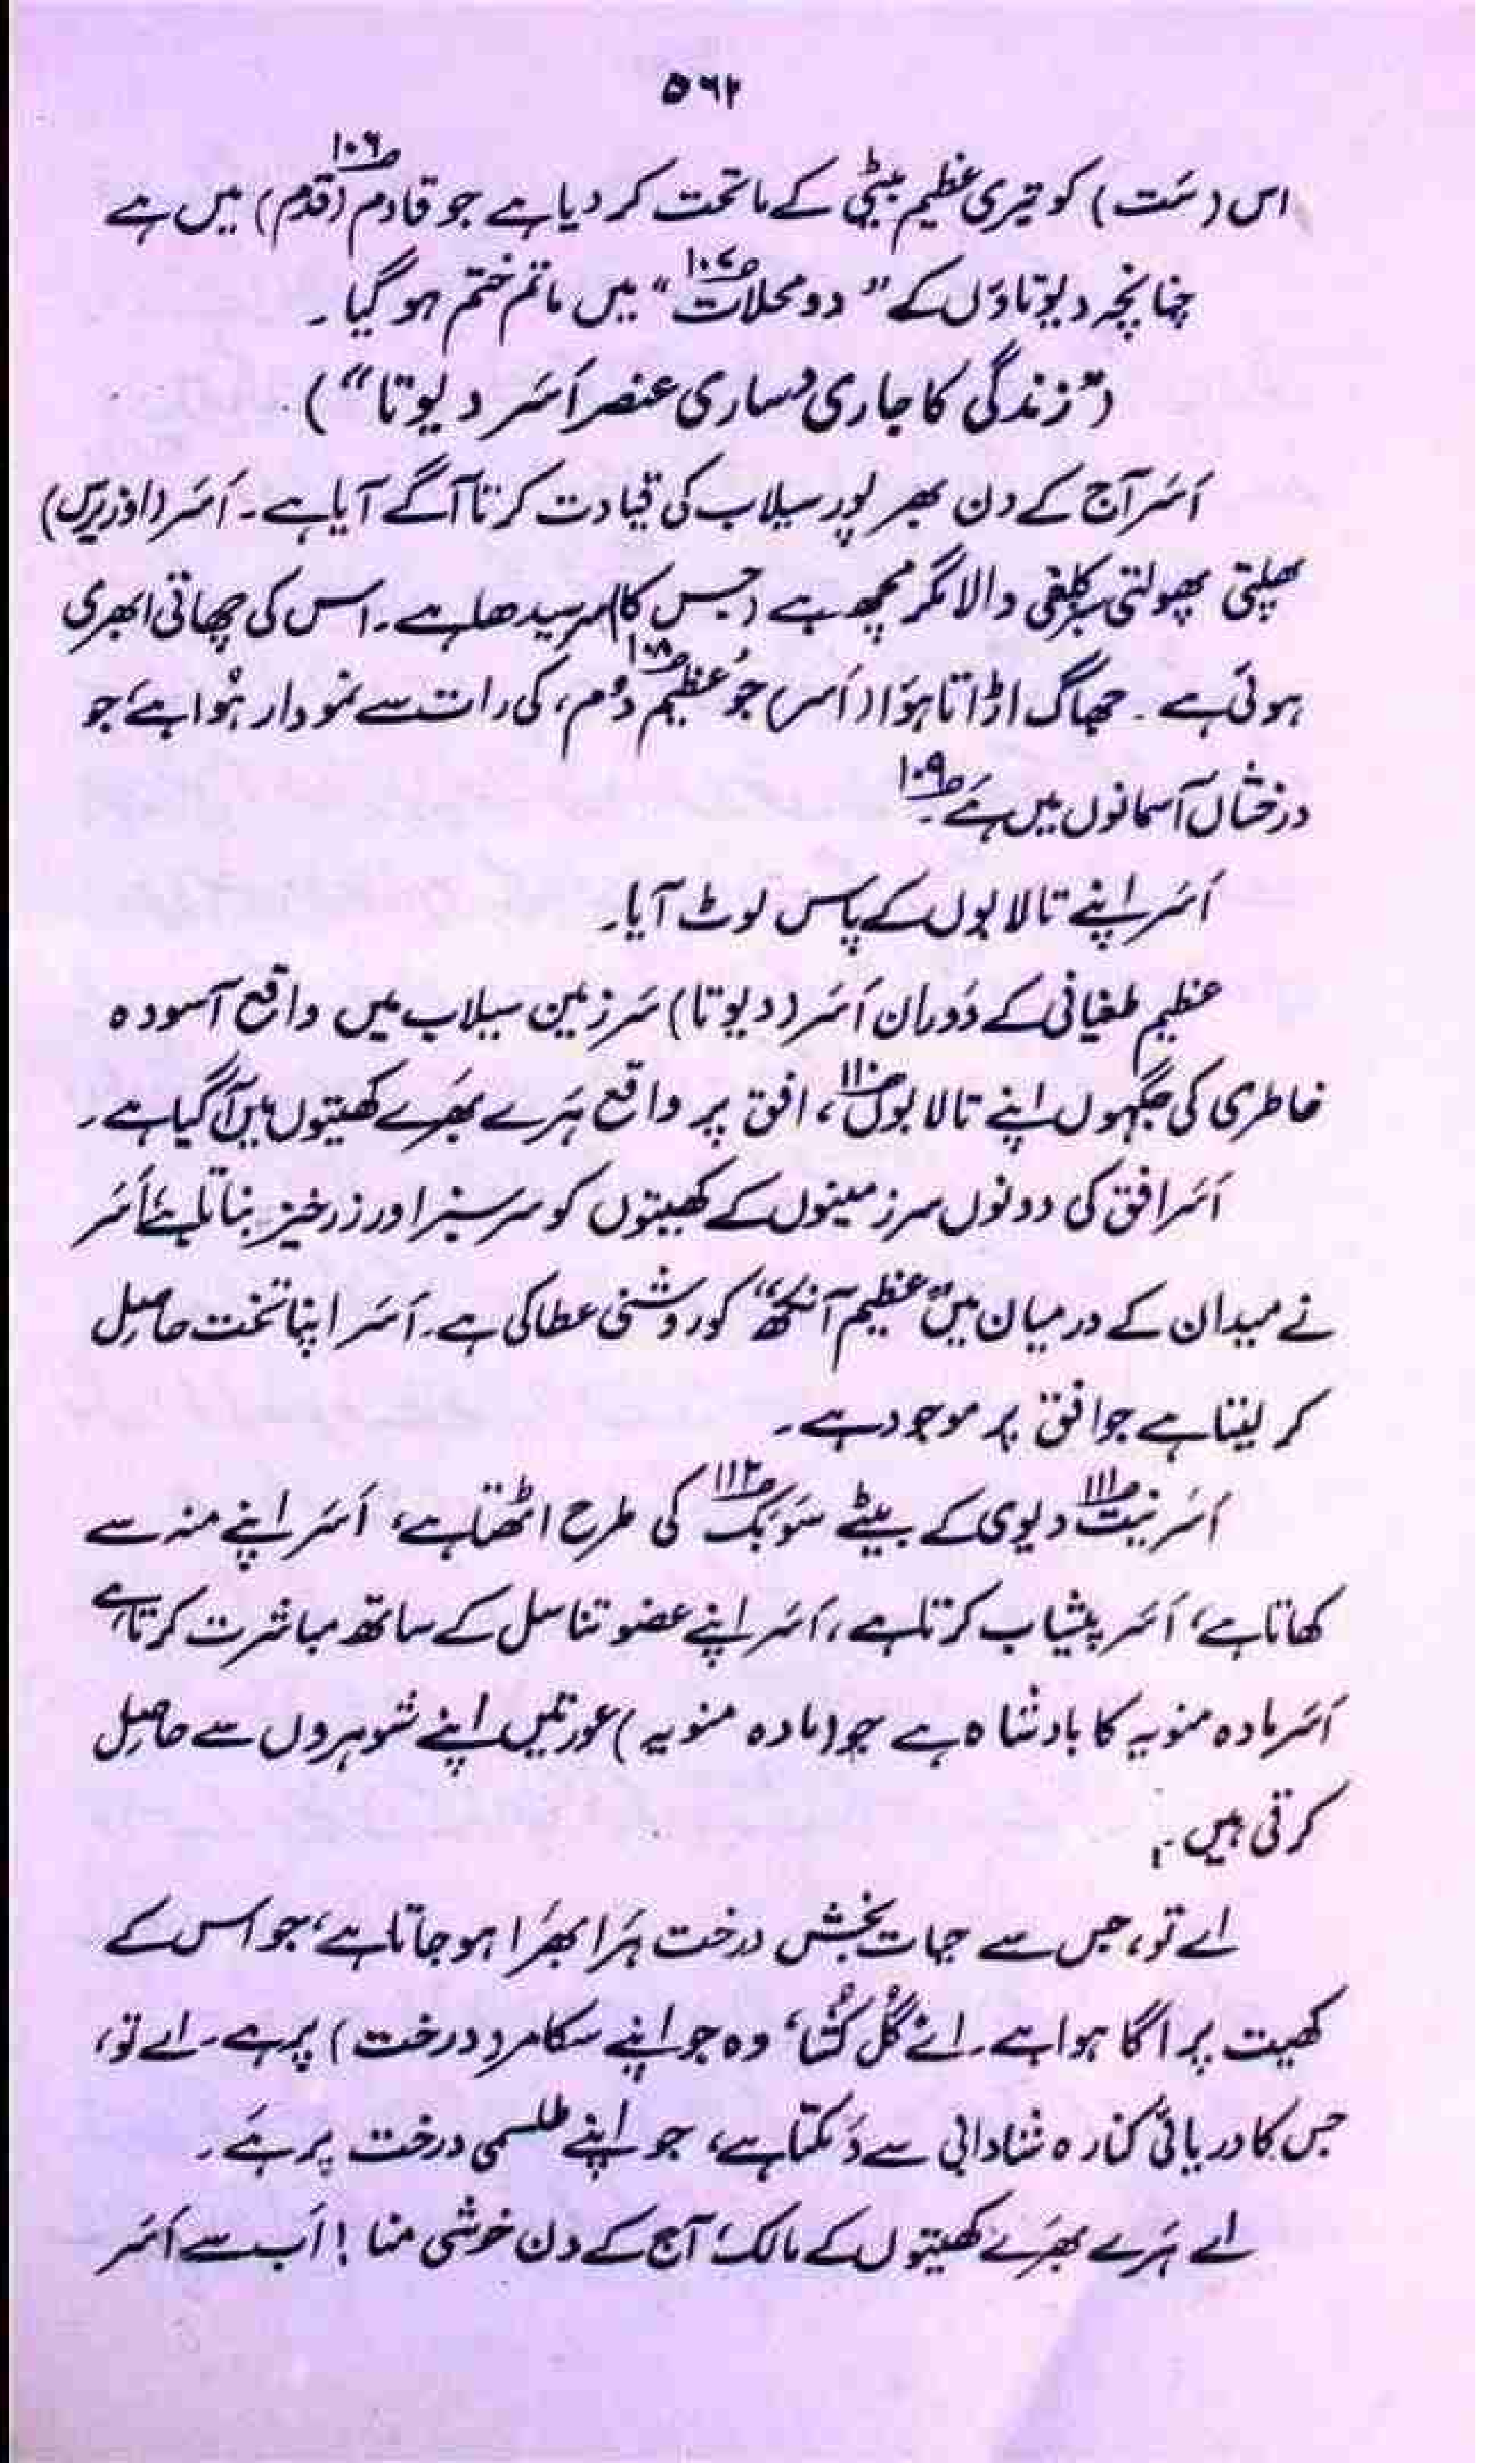 ۵۶۲
اس (سَت) کو تیری عظیم بیٹی کے ماتحت کر دیا ہے جو قادم (قدم)۱۰۶ میں ہے
چنانچہ دیوتاؤں کے ”دو محلات۱۰۷“ میں ماتم ختم ہو گیا۔
(”زندگی کا جاری و ساری عنصر اَسَر دیوتا“)
اَسَر آج کے دن بھر پور سیلاب کی قیادت کرتا آگے آیا ہے۔ اَسَر (اوزیرس)
پھلتی پھولتی کلغی والا مگر مچھ ہے (جس کا) سر سیدھا ہے۔ اس کی چھاتی ابھری
ہوئی ہے۔ جھاگ اڑاتا ہوا (اَسر) جو ’عظیم دُم‘۱۰۸ کی رات سے نمودار ہُوا ہے، جو
درخشاں آسمانوں میں ہے۔۱۰۹
اَسَر اپنے تالابوں کے پاس لوٹ آیا۔
عظیم طغیانی کے دَوران اَسَر (دیوتا) سَرزمین سیلاب میں واقع آسودہ
خاطری کی جگہوں اپنے تالابوں۱۱۰، افق پر واقع ہَرے بھَرے کھیتوں میں آ گیا ہے۔
اَسَر افق کی دونوں سرزمینوں کے کھیتوں کو سرسبز اور زرخیز بناتا ہے، اَسَر
نے میدان کے درمیان میں ”عظیم آنکھ“ کو روشنی عطا کی ہے۔ اَسَر اپنا تخت حاصِل
کر لیتا ہے جو افق پر موجود ہے۔
اَسَر نیت۱۱۱ دیوی کے بیٹے سَوبَک۱۱۲ کی طرح اٹھتا ہے، اَسَر اپنے منہ سے
کھاتا ہے، اَسَر پیشاب کرتا ہے، اَسَر اپنے عضو تناسل کے ساتھ مباشرت کرتا ہے
اَسَر مادہ منویہ کا بادشاہ ہے جو (مادہ منویہ) عورتیں اپنے شوہروں سے حاصِل
کرتی ہیں۔
اے تو، جس سے حیات بخش درخت ہَرا بھَرا ہو جاتا ہے، جو اس کے
کھیت پر اگا ہوا ہے۔ اے گُل کُشا، وہ جو اپنے سکامر (درخت) پر ہے۔ اے تو،
جس کا دریائی کنارہ شادابی سے دَمکتا ہے، جو اپنے طلسمی درخت پر ہے۔
اے ہَرے بھَرے کھیتوں کے مالک، آج کے دن خوشی منا! اَب سے اَسَر